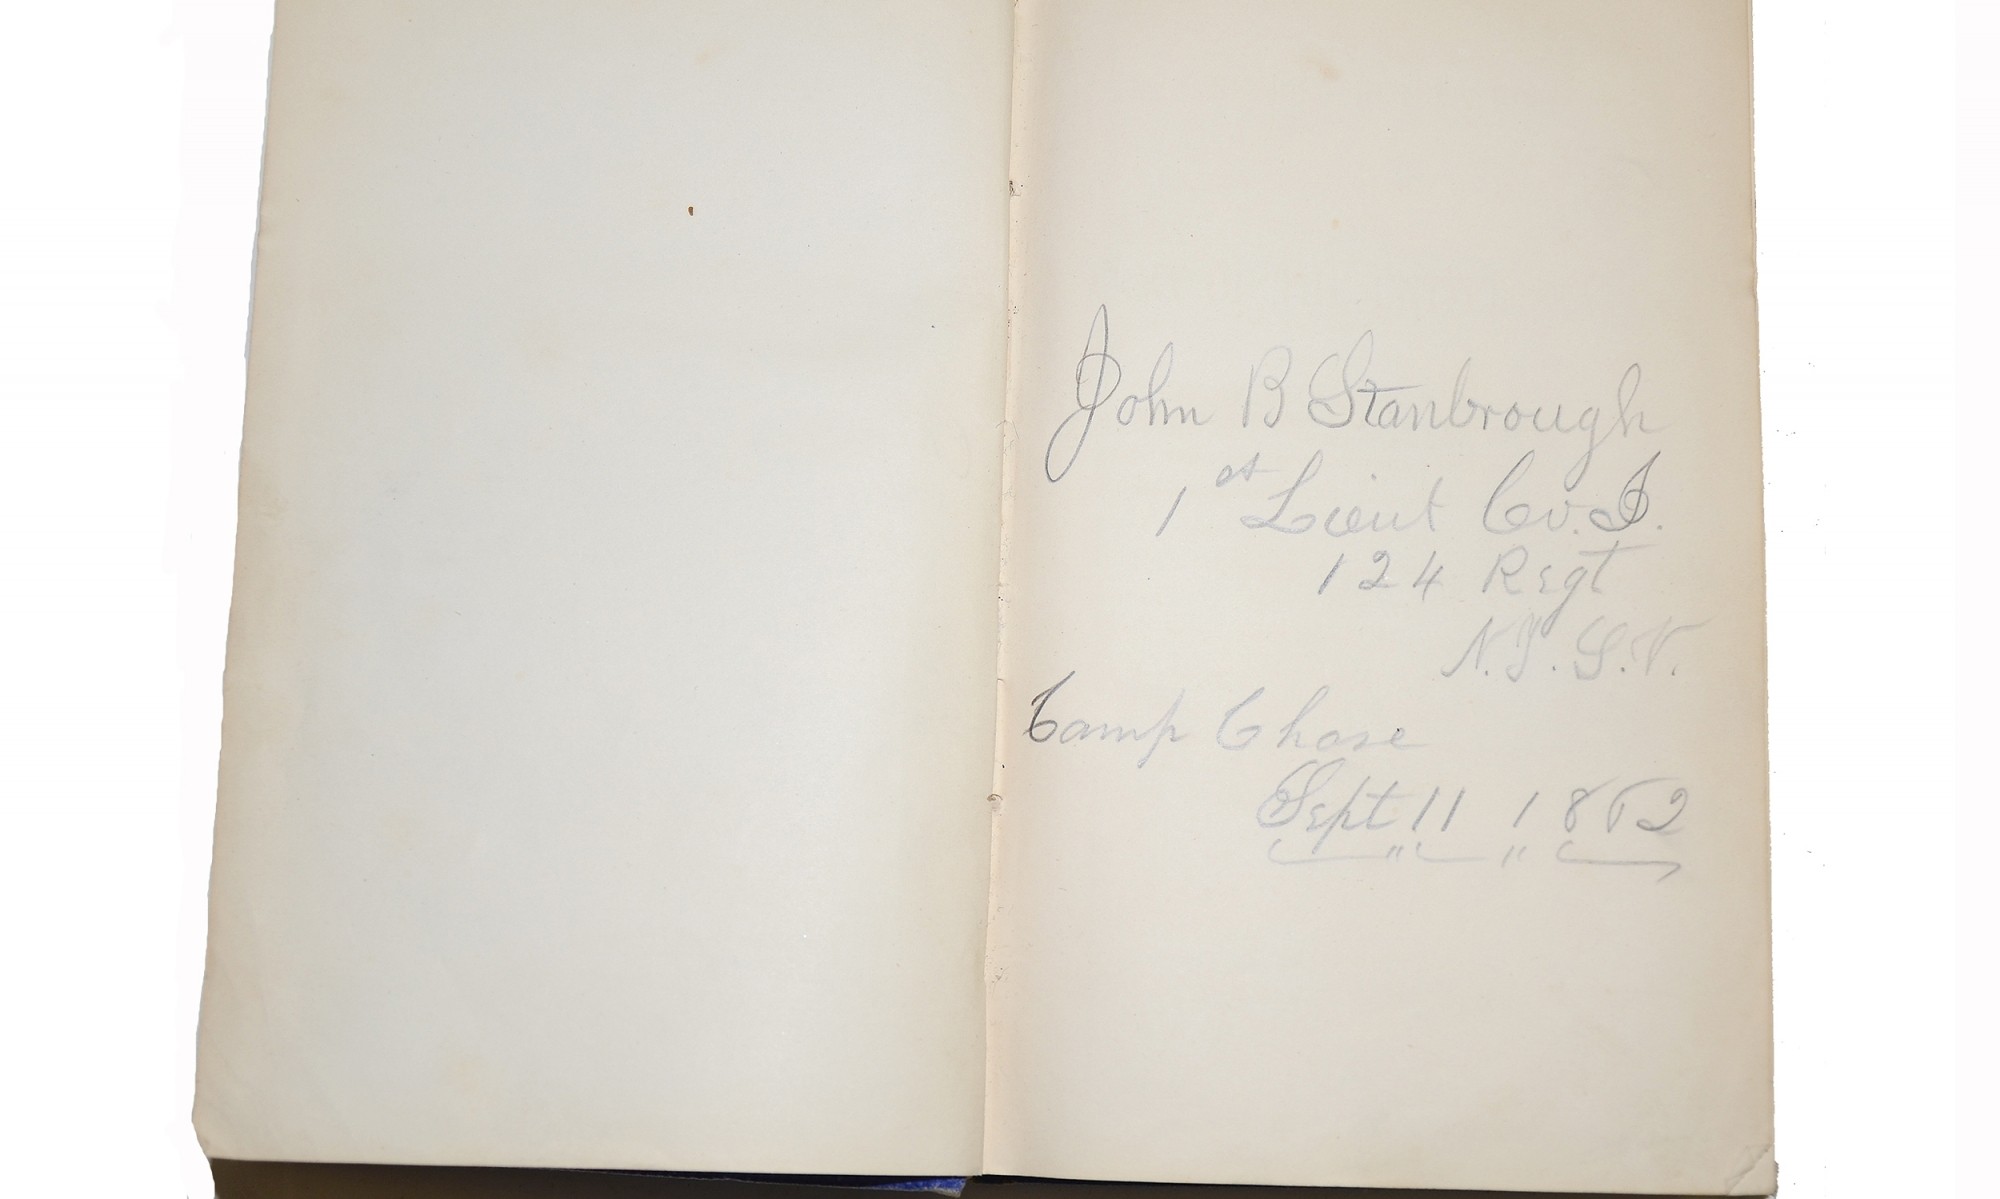 John B Stanbrough
1st Lieut Co. I.
124 Regt
N.Y.S.V.
Camp Chase
Sept 11 1862